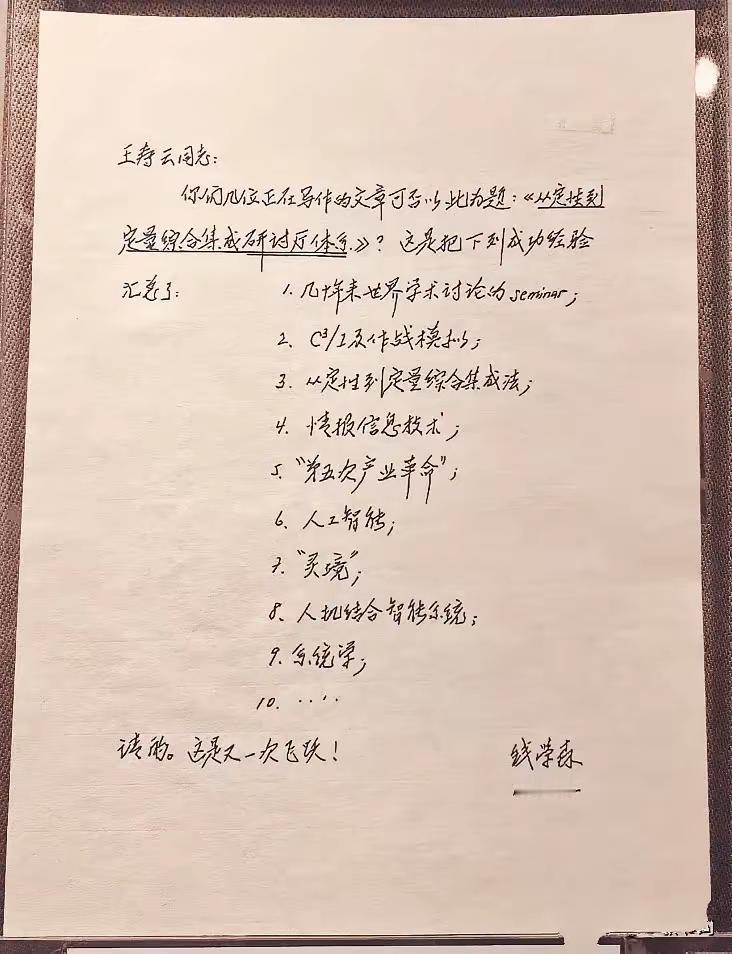 王寿云同志:
你们几位正在写作的文章可否以此为题:《从定性到
定量综合集成研讨厅体系》? 这是把下列成功经验
汇总了: 1. 几十年来世界学术讨论的 seminar;
2. C³/I及作战模拟;
3. 从定性到定量综合集成法;
4. 情报信息技术;
5. "第五次产业革命";
6. 人工智能;
7. "灵境";
8. 人机结合智能系统;
9. 系统学;
10. ····
请酌。这是又一次飞跃!
钱学森